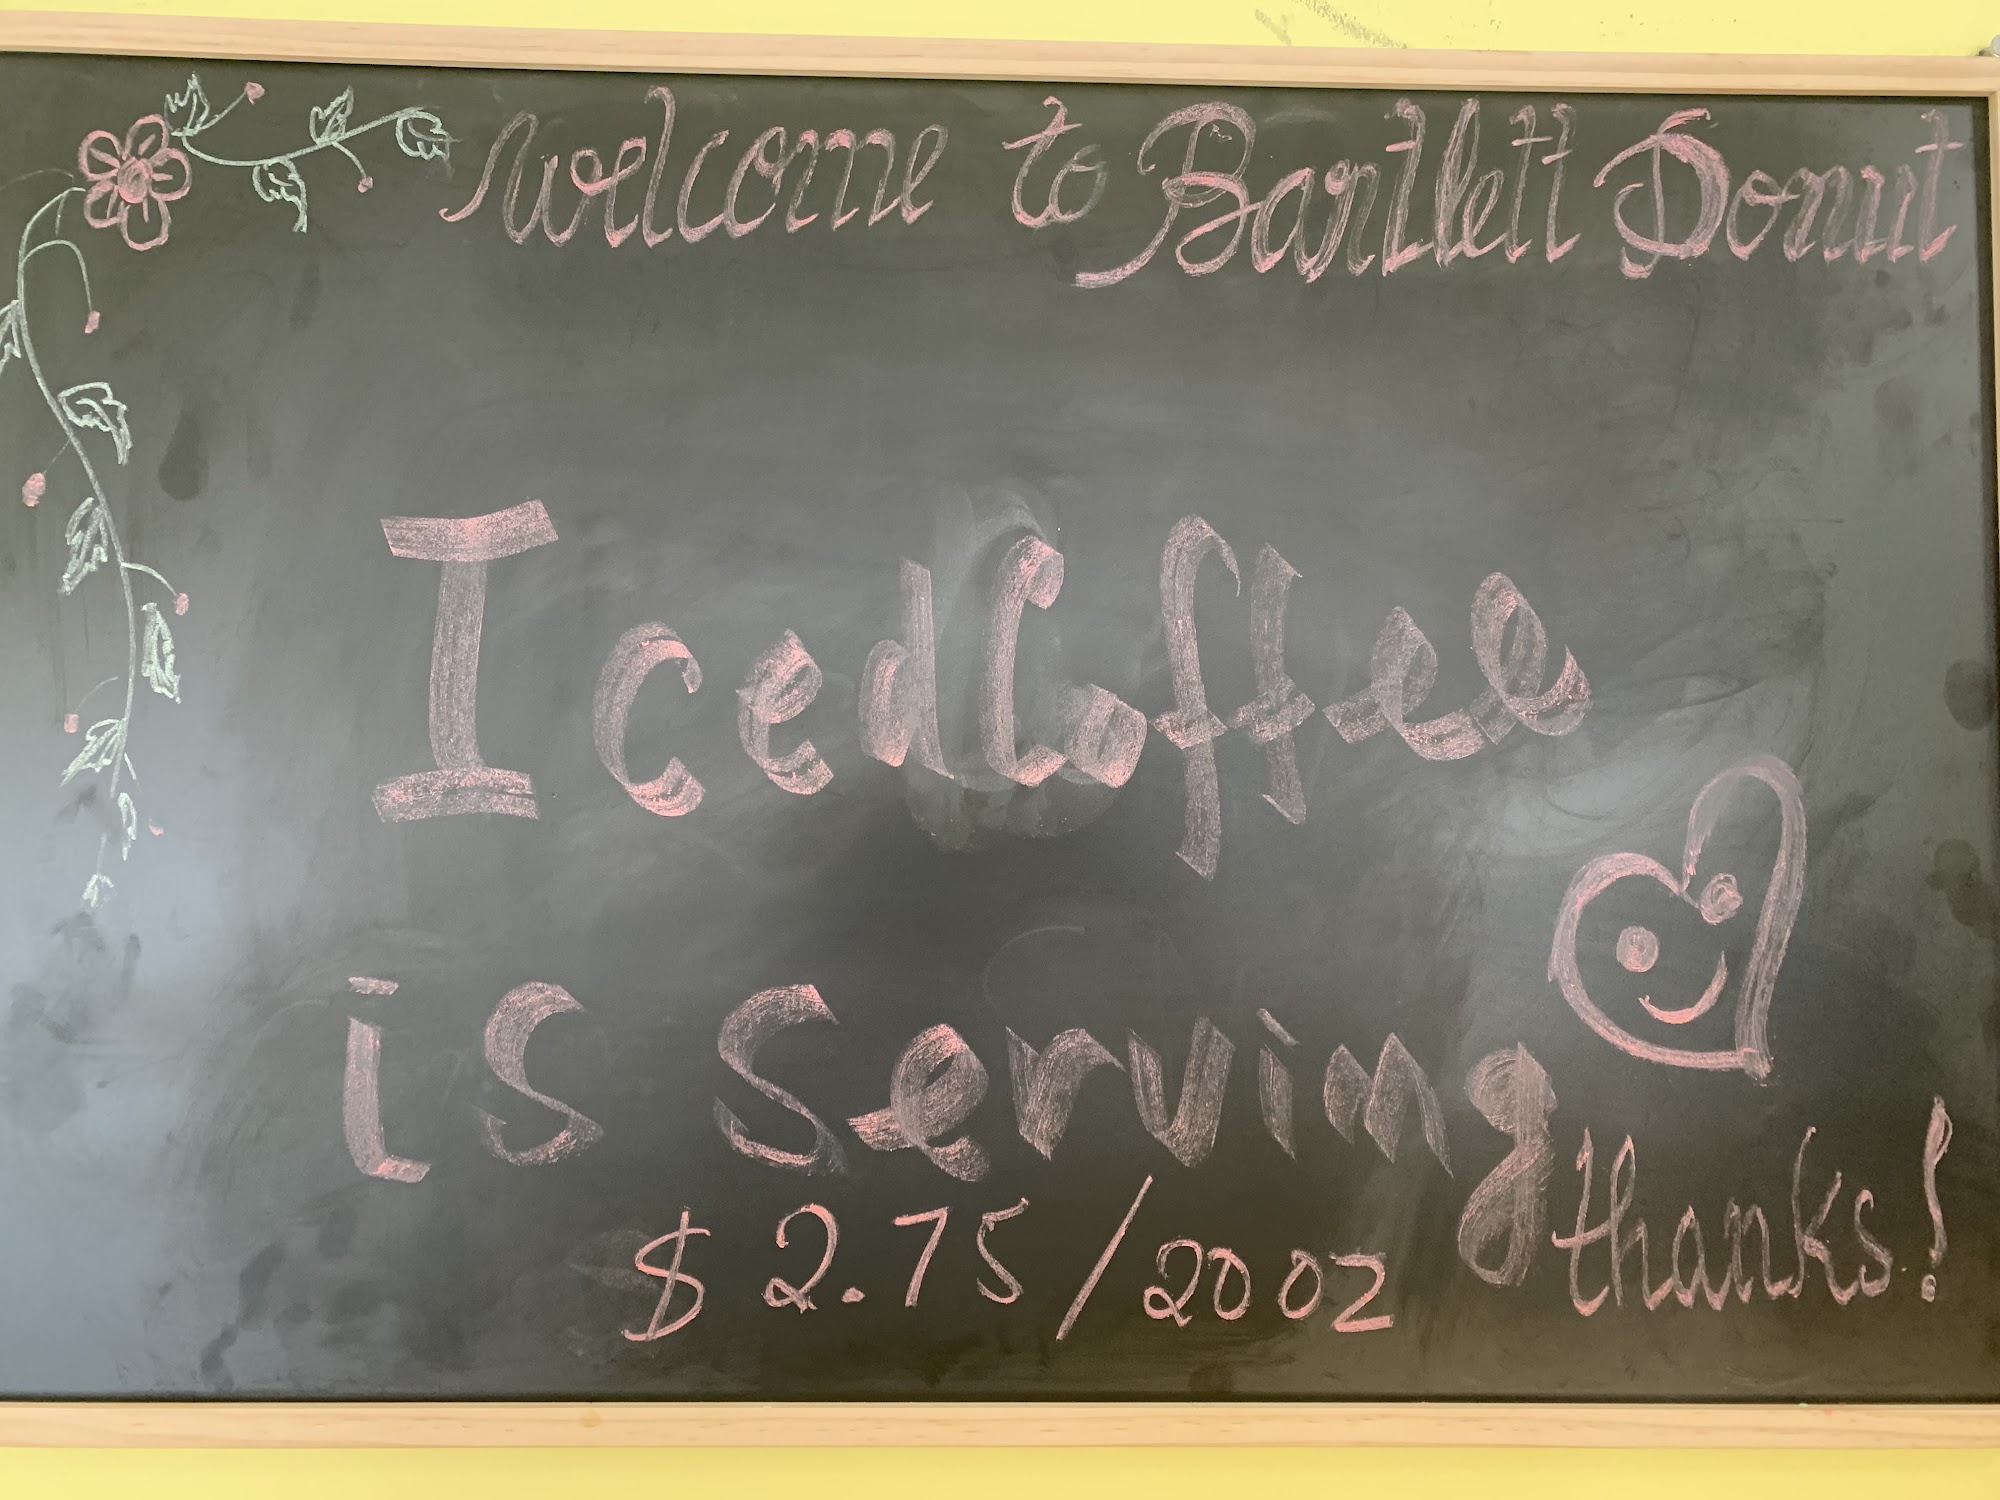 welcome to Bartlett Donut
Iced Coffee
is Serving
$2.75/20oz
thanks!